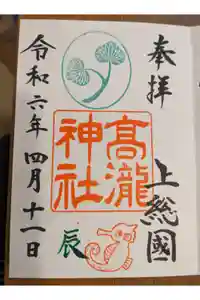 奉拝
上総國
髙瀧神社
辰
令和六年四月十一日